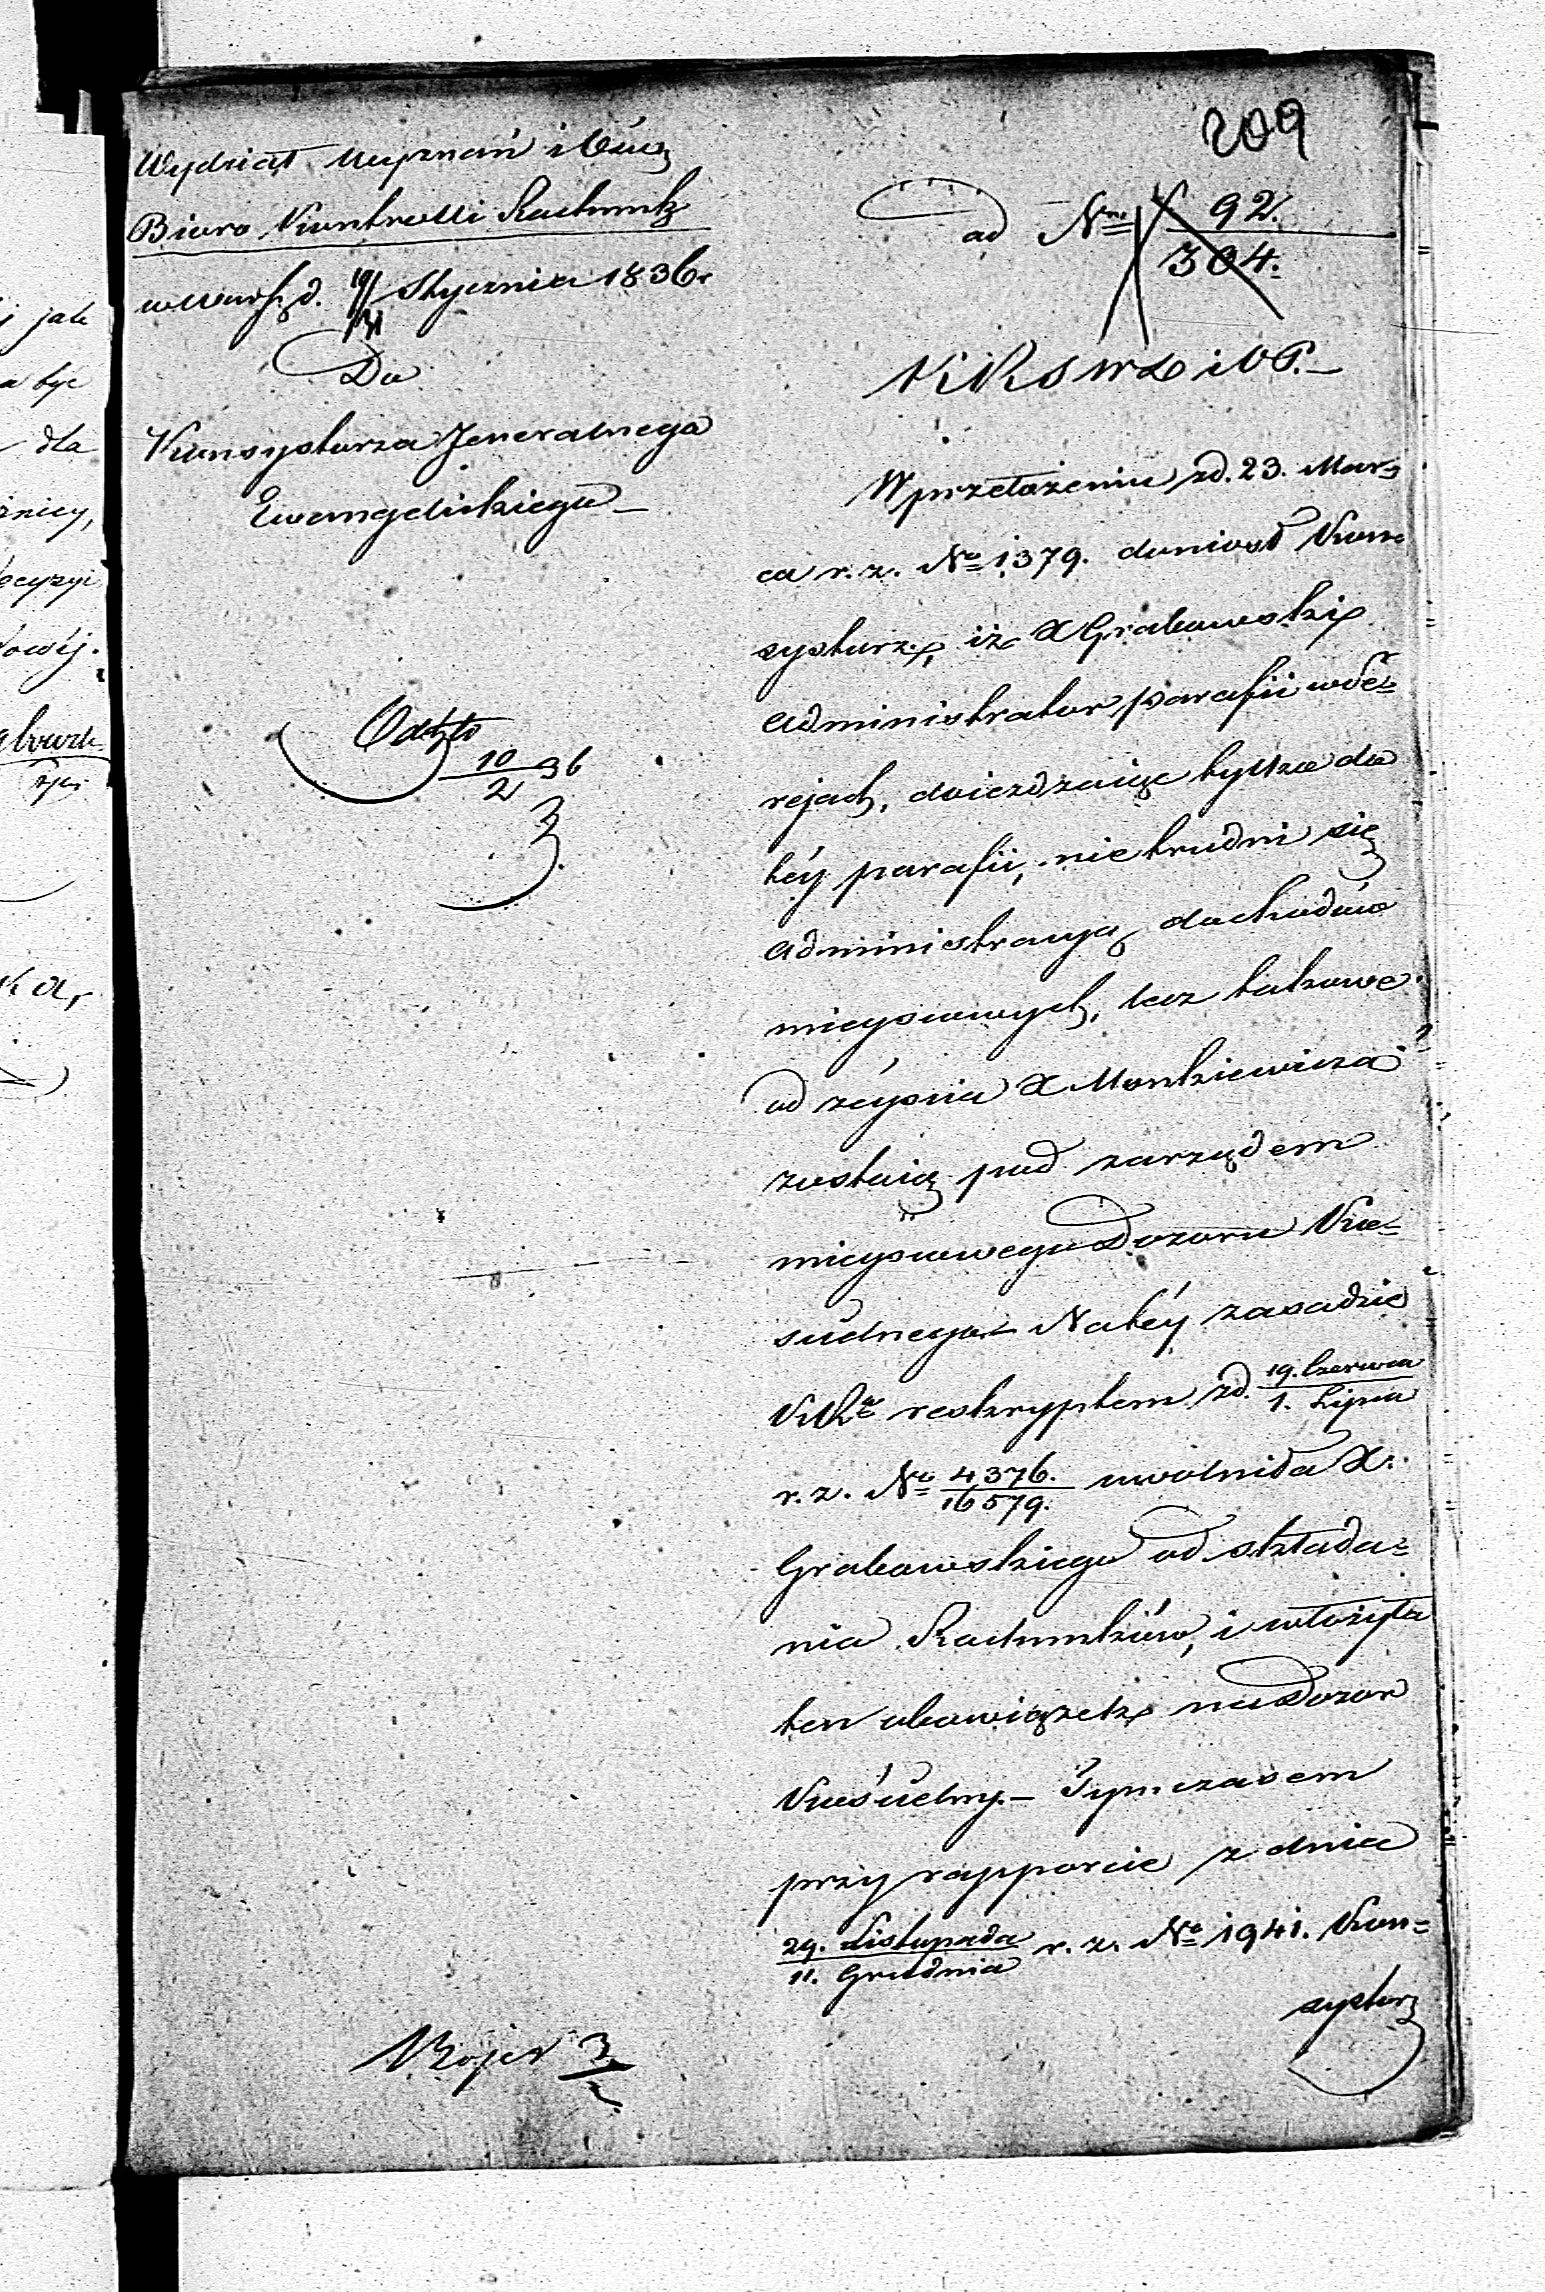 209
Wydział Wyznań i Ośw.
Biuro Kontrolli Rachunk.
w Warsz. d. 19/31 Stycznia 1836 r
Do
Konsystorza Jeneralnego
Ewangelickiego
Odeszło
10/2 36
ad Nrm 92./304.
KRSWD i OP.
W przełożeniu zd. 23. Mar=
ca r. z. No 1379. doniosł Kon=
systorz, iż X Grabowski
Administrator parafii w Se=
rejach, doieżdżaiąc tylko do
téy parafii, nie trudni się
administracyą dochodów
mieyscowych, lecz takowe
od zéyścia X Monkiewicza
zostaią pod zarządem
mieyscowego Dozoru Ko=
ścielnego. Na téy zasadzie
KRa reskryptem zd. 19. Czerwca/1. Lipca
r. z. No 4376./16579. uwolniła X.
Grabowskiego od składa=
nia Rachunków, i włożyła
ten obowiązek na Dozor
Kościelny. Tymczasem
przy rapporcie z dnia
29. Listopada/11. Grudnia r. z. No 1941. Kon=
systorz
jak
być
dla